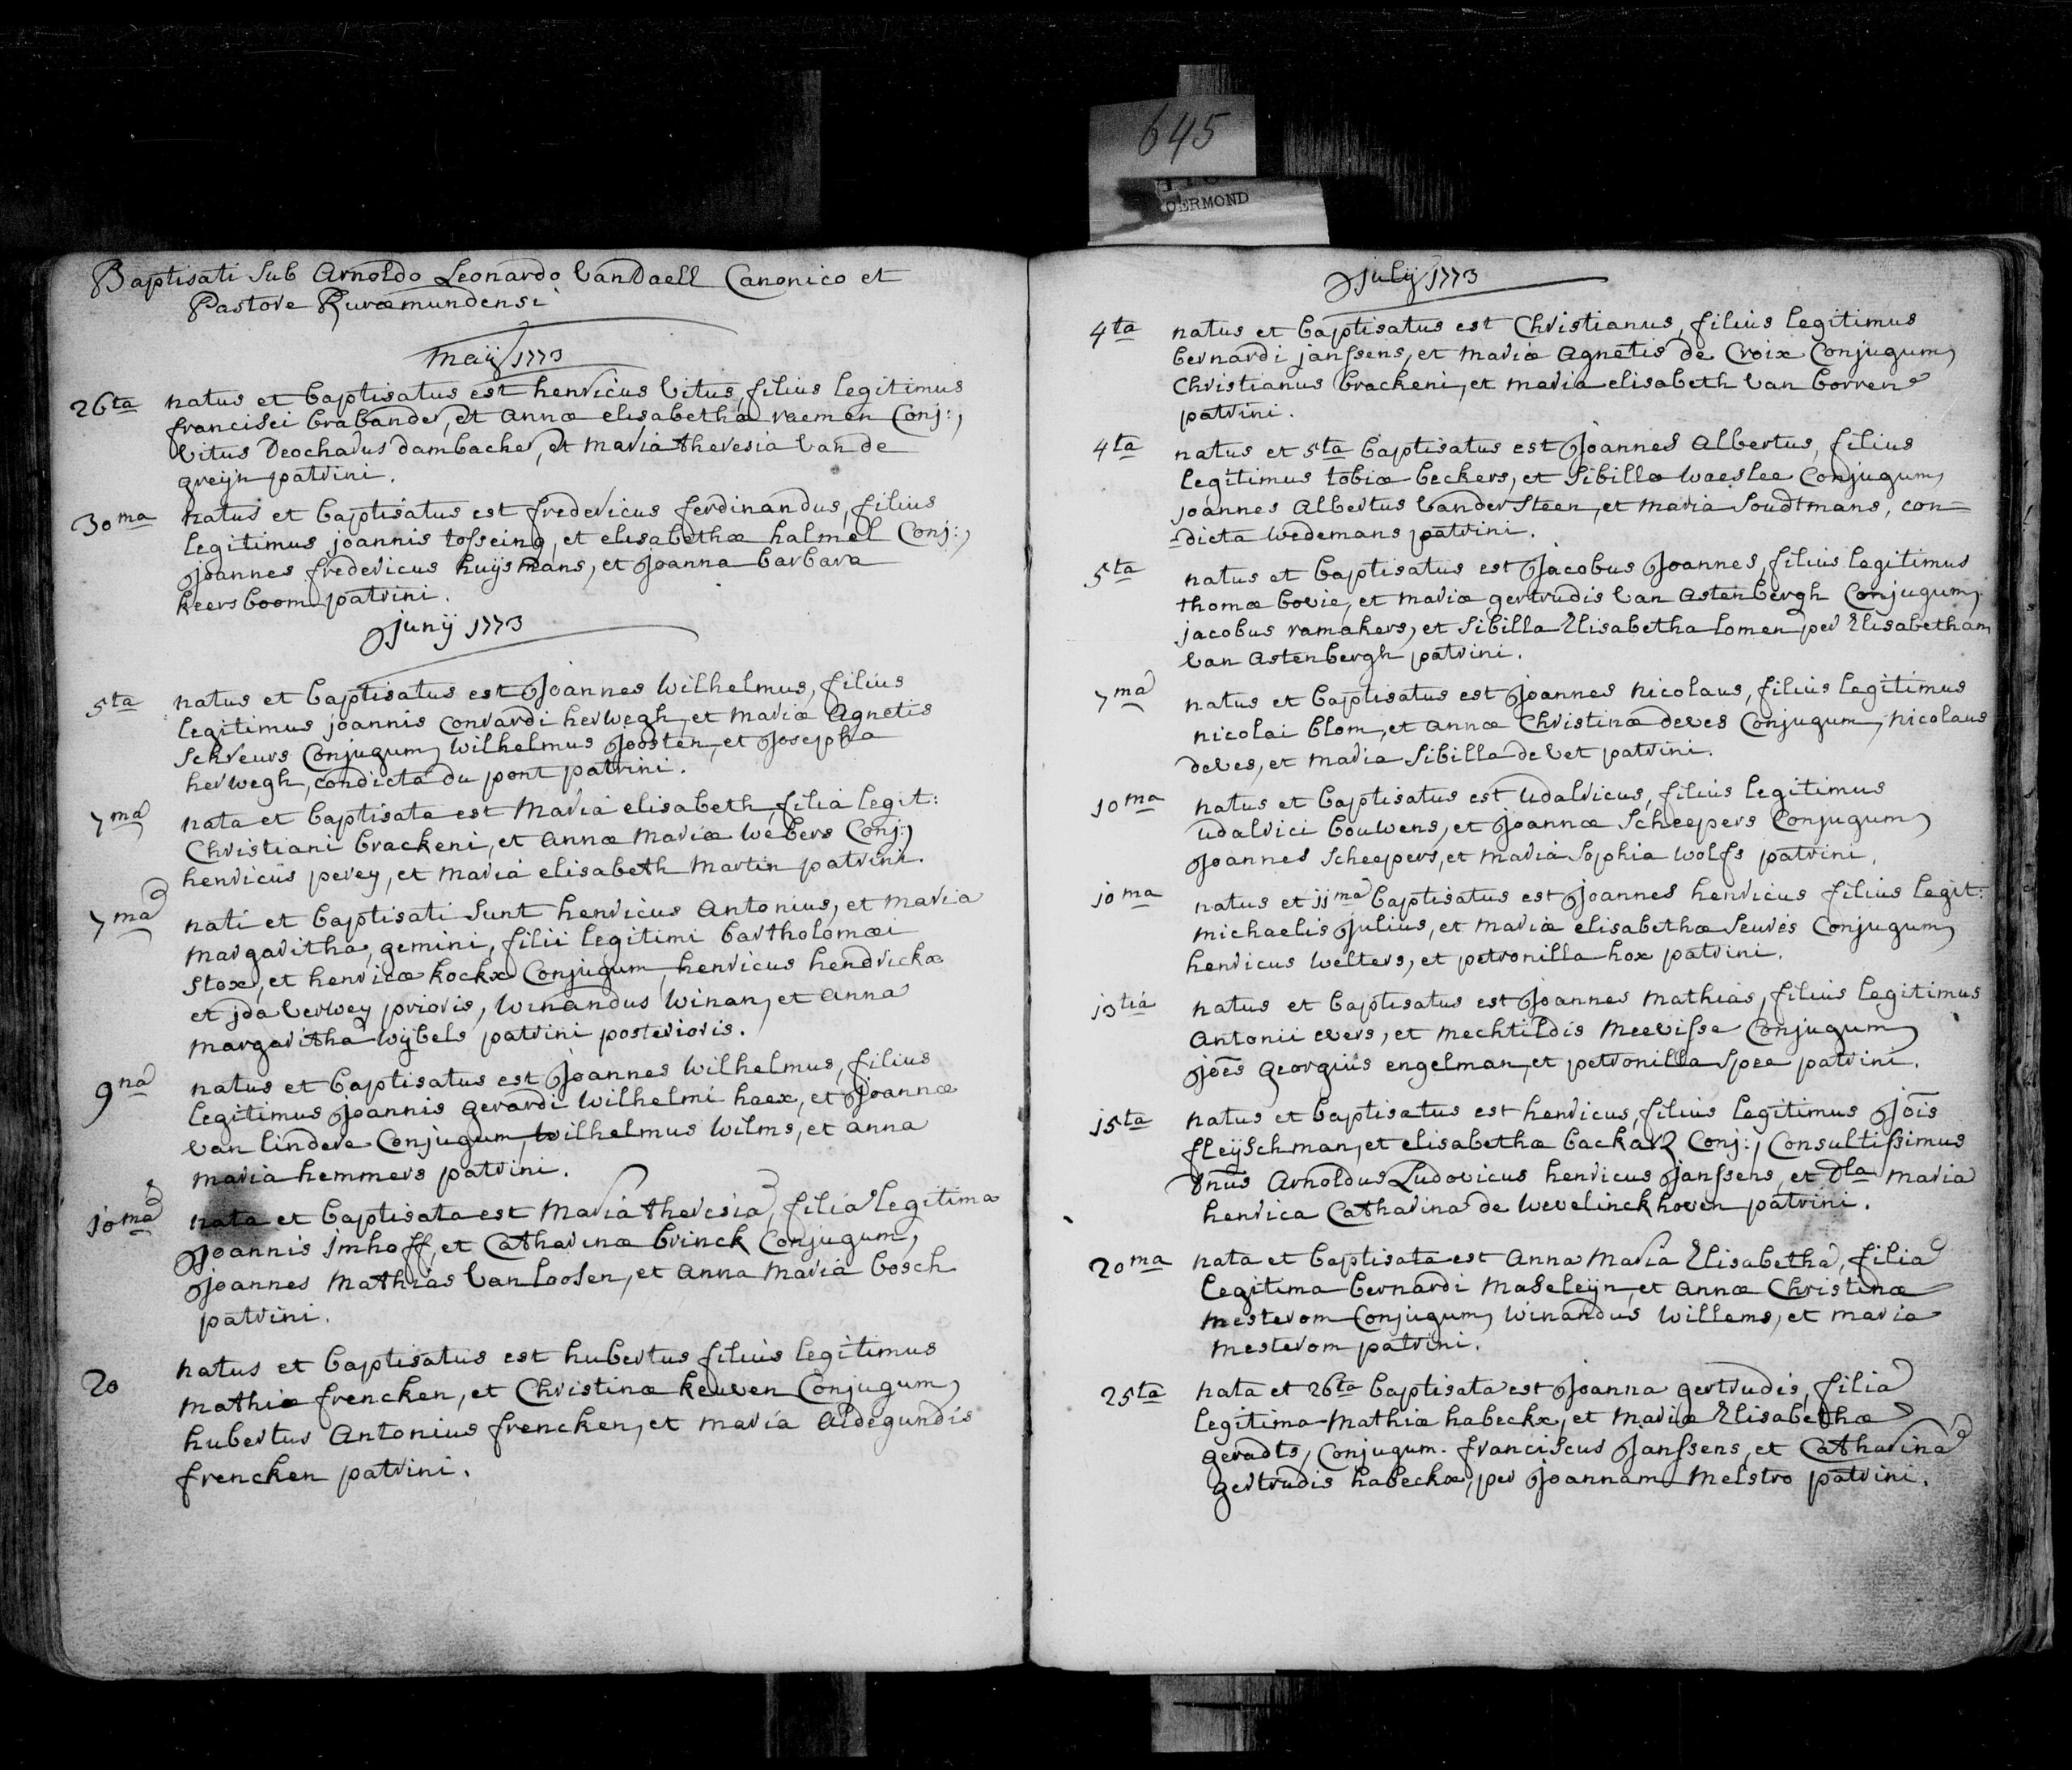 645
OERMOND
Baptisati Sub Arnoldo Leonardo VanDaell Canonico et
Pastore Ruræmundensi
Maij 1773
26ta natus et baptisatus est henricus Vitus, filius legitimus
francisci brabander, et Annæ elisabethæ raemen Conj:,
Vitus Deocharus dambacher, et Maria theresia Van de
greijn patrini.
30ma natus et baptisatus est fredericus ferdinandus, filius
legitimus joannis tosseing, et elisabethæ halmel Conj:,
Joannes fredericus huijsmans, et Joanna barbara
keersboom patrini.
Junij 1773
5ta natus et baptisatus est Joannes Wilhelmus, filius
legitimus joannis Conrardi herwegh, et Mariæ Agnetis
Schreurs Conjugum, Wilhelmus Joosten, et Josepha
herwegh, condicta du pont patrini.
7ma nata et baptisata est Maria elisabeth, filia legit:
Christiani brackeni, et Annæ Mariæ Webers Conj:,
henricus perey, et Maria elisabeth Martin patrini.
7ma nati et baptisati Sunt henricus Antonius, et Maria
Margaritha, gemini, filii legitimi bartholomæi
Stox, et henricæ kockx Conjugum, henricus hendrickx
et jda Verwey prioris, Winandus Winan, et Anna
Margaritha Wijbels patrini posterioris.
9na natus et baptisatus est Joannes Wilhelmus, filius
legitimus Joannis gerardi Wilhelmi haex, et Joannæ
Van lindere Conjugum, Wilhelmus Wilms, et anna
maria hemmers patrini.
10ma nata et baptisata est Maria theresia, filia legitima
Joannis jmhoff, et Catharinæ brinck Conjugum,
Joannes Mathias Van loosen, et Anna Maria bosch
patrini.
20 natus et baptisatus est hubertus filius legitimus
Mathiæ frencken, et Christinæ keuven Conjugum,
hubertus Antonius frencken, et Maria Aldegundis
frencken patrini.
July 1773
4ta natus et baptisatus est Christianus, filius legitimus
bernardi janssens, et Mariæ Agnetis de Croix Conjugum,
Christianus brackeni, et Maria elisabeth Van borren
patrini.
4ta natus et 5ta baptisatus est Joannes Albertus, filius
legitimus tobiæ beckers, et Sibillæ Waeslee Conjugum,
joannes Albertus Vander Steen, et Maria Soudtmans, con=
=dicta Wedemans patrini.
5ta natus et baptisatus est Jacobus Joannes, filius legitimus
thomæ bovie, et Mariæ gertrudis Van Astenbergh Conjugum,
jacobus ramakers, et Sibilla Elisabetha lomen per Elisabetham
Van Astenbergh patrini.
7ma natus et baptisatus est Joannes Nicolaus, filius legitimus
nicolai blom, et Annæ Christinæ deves Conjugum, Nicolaus
deves, et Maria Sibilla de Vet patrini.
10ma natus et baptisatus est Udalricus, filius legitimus
Udalrici bouwens, et Joannæ Scheepers Conjugum,
Joannes Scheepers, et Maria Sophia Wolfs patrini.
10ma natus et 11ma baptisatus est Joannes henricus filius legit:
Michaelis Julius, et Mariæ elisabethæ Seures Conjugum,
henricus Welters, et petronilla hox patrini.
13tia natus et baptisatus est Joannes Mathias, filius legitimus
Antonii evers, et Mechtildis Meevisse Conjugum,
Jōēs Georgius engelman, et petronilla Spee patrini.
15ta natus et baptisatus est henricus, filius legitimus Jōīs
fleijschman, et elisabethæ backarz Conj:, Consultissimus
Dnus Arnoldus Ludovicus henricus Janssens, et Dla Maria
henrica Catharina de Wevelinckhoven patrini.
20ma nata et baptisata est Anna Maria Elisabetha, filia
legitima bernardi Maseleijn, et Annæ Christinæ
Mesterom Conjugum, Winandus Willems, et Maria
Mesterom patrini.
25ta nata et 26ta baptisata est Joanna gertrudis, filia
legitima Mathiæ habeckx, et Mariæ Elisabethæ
geradts, Conjugum. franciscus Janssens, et Catharina
gertrudis habeckx, per Joannam Melstro patrini.